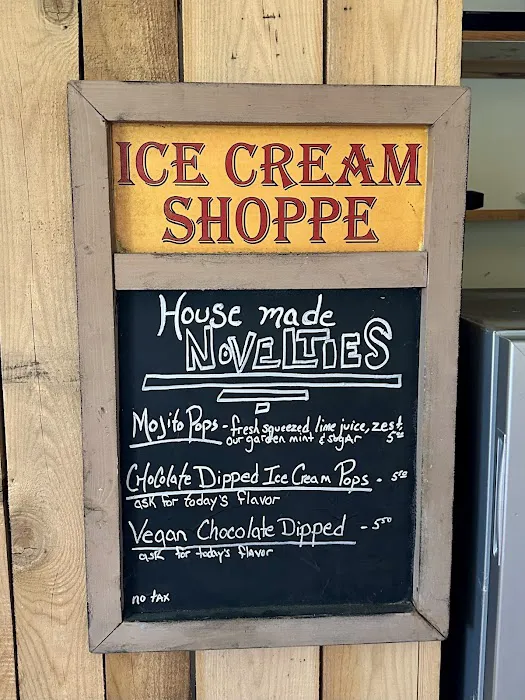 ICE CREAM
SHOPPE
House made
NOVELTIES
Mojito Pops - fresh squeezed lime juice, zest,
our garden mint & sugar
Chocolate Dipped Ice Cream Pops -
ask for today's flavor
Vegan Chocolate Dipped - 5⁵⁰
ask for today's flavor
no tax